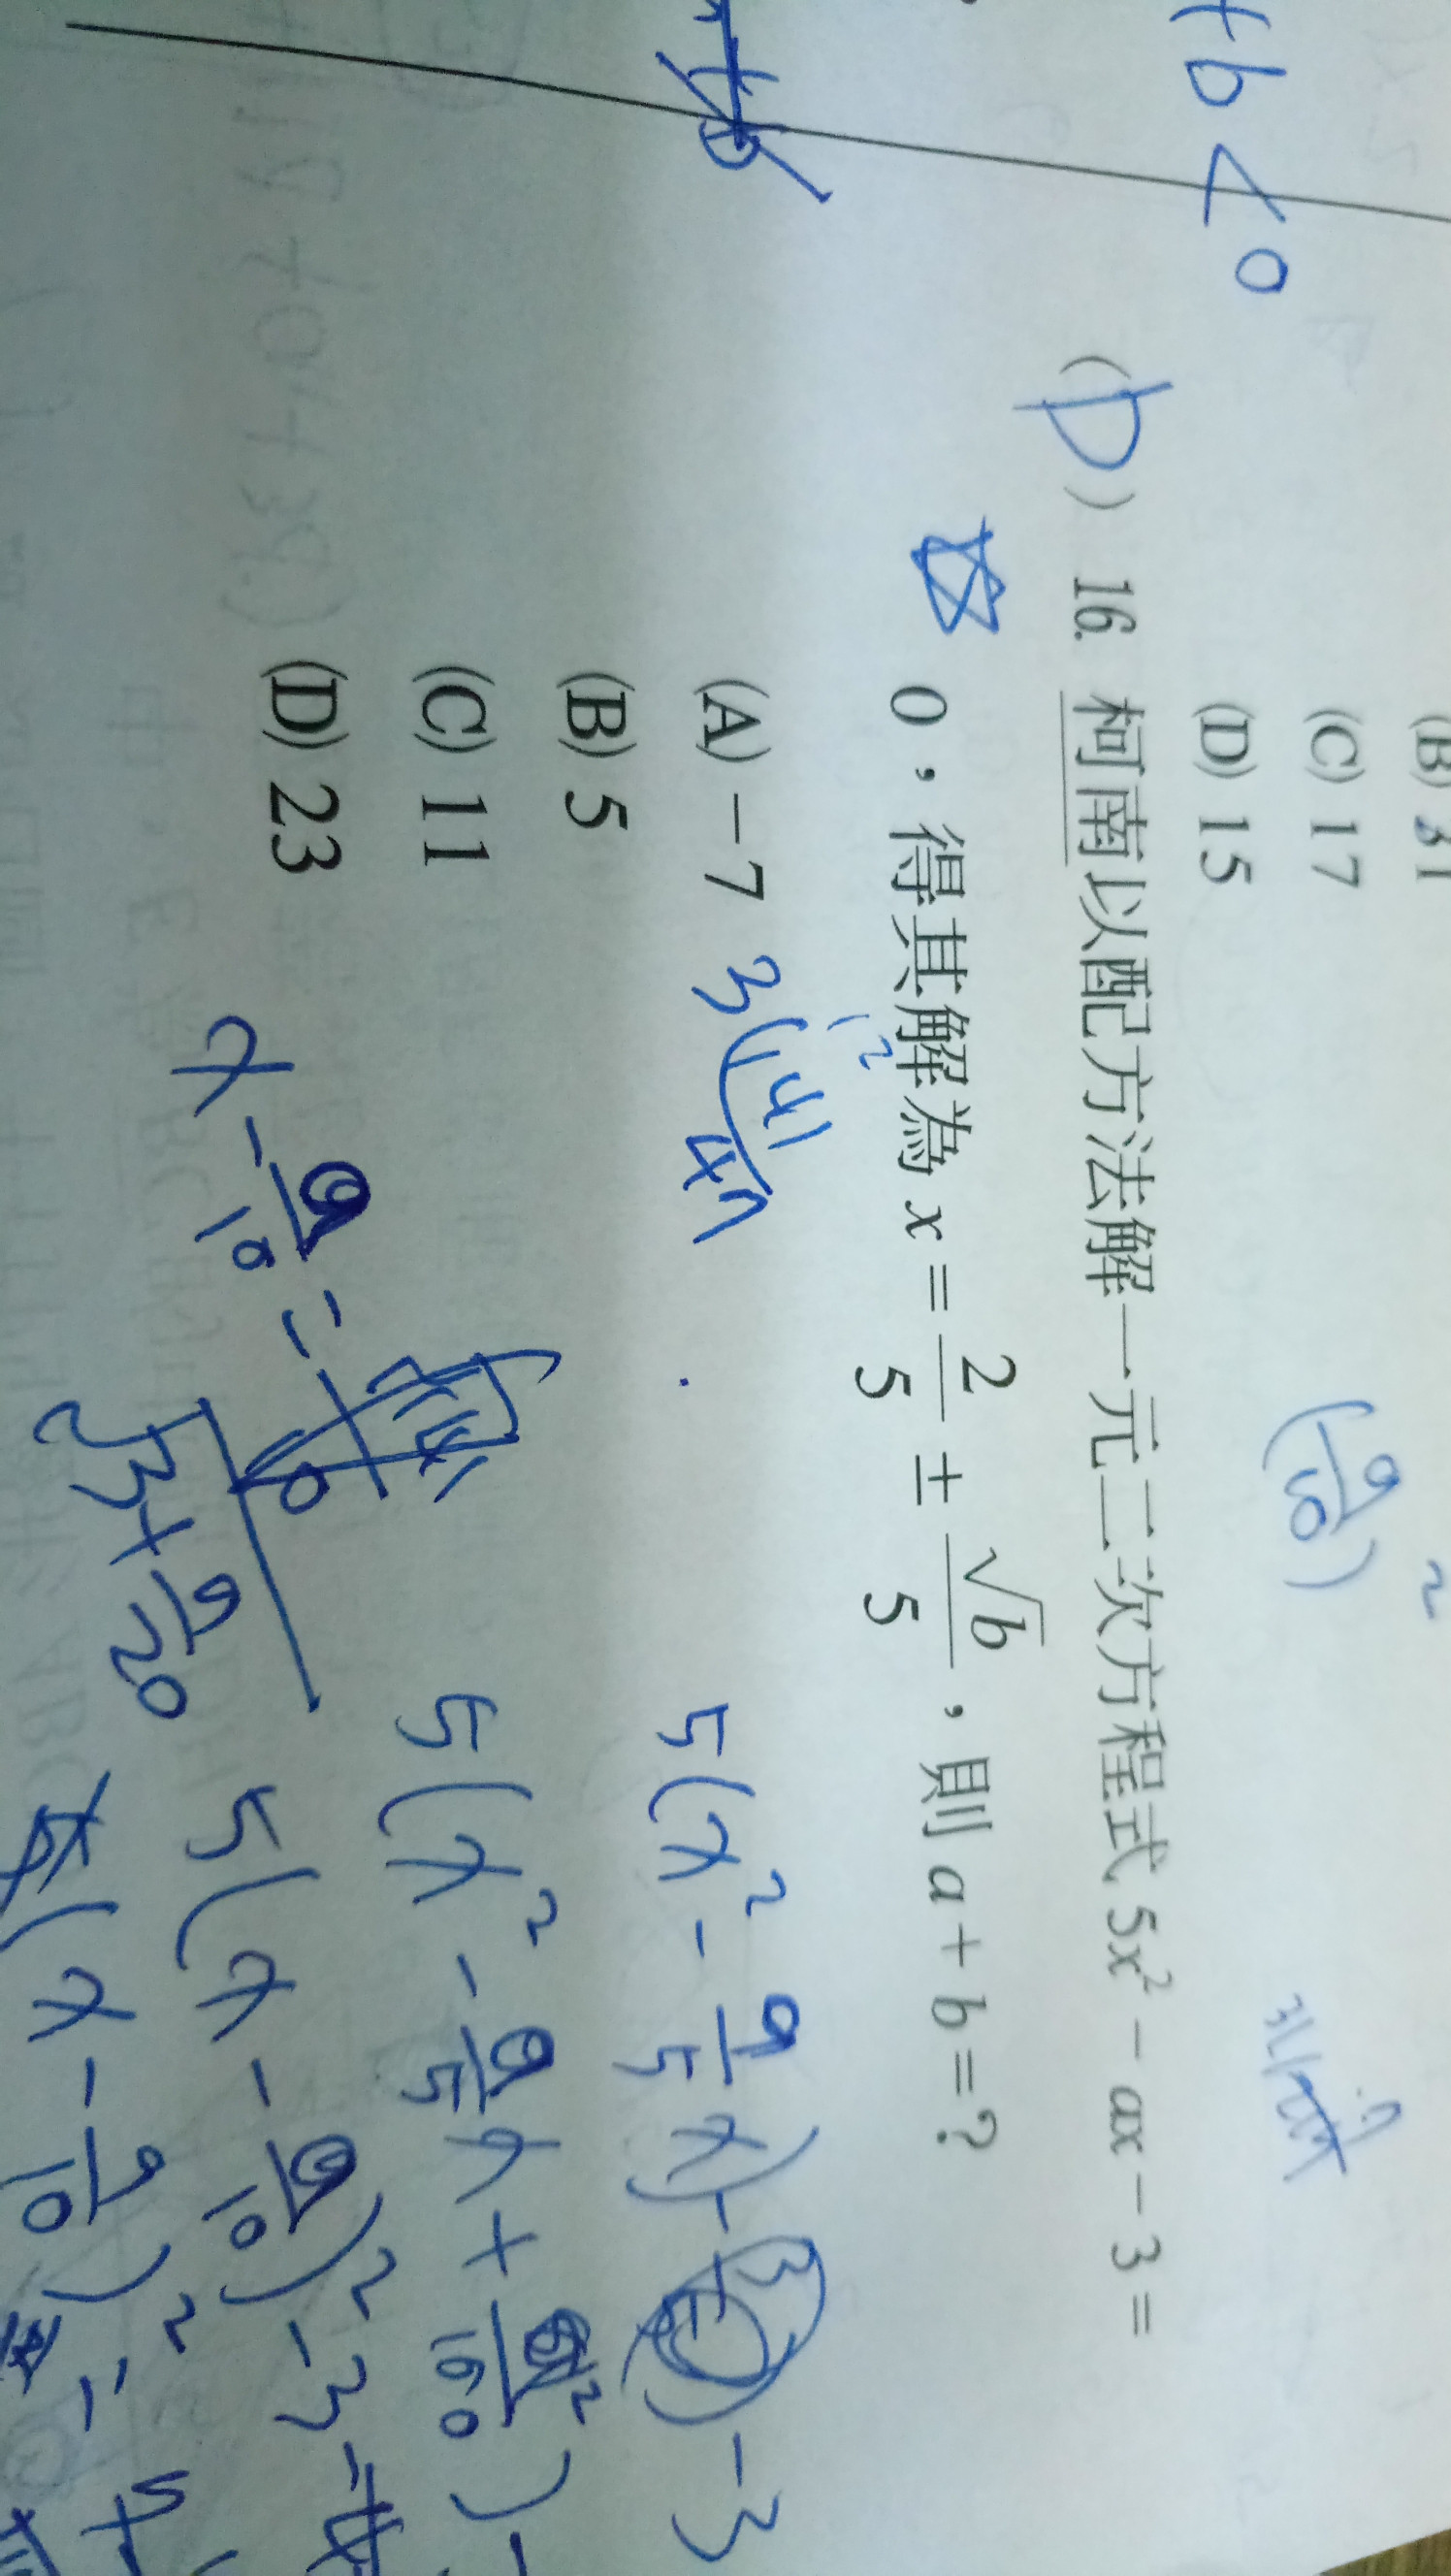 +b<0
(B) 31
(C) 17
(D) 15
(9/10)²
(D) 16. 柯南以配方法解一元二次方程式 5x² − ax − 3 =
0，得其解為 x = 2/5 ± √b/5，則 a + b = ?
(A) −7
(B) 5
(C) 11
(D) 23
3 141
47
5(x² − a/5 x) − 3
5(x² − a/5 x + a²/100) −
5(x − a/10)² − 3 −
(x − a/10)² =
x − a/10 =
√3 + a/20